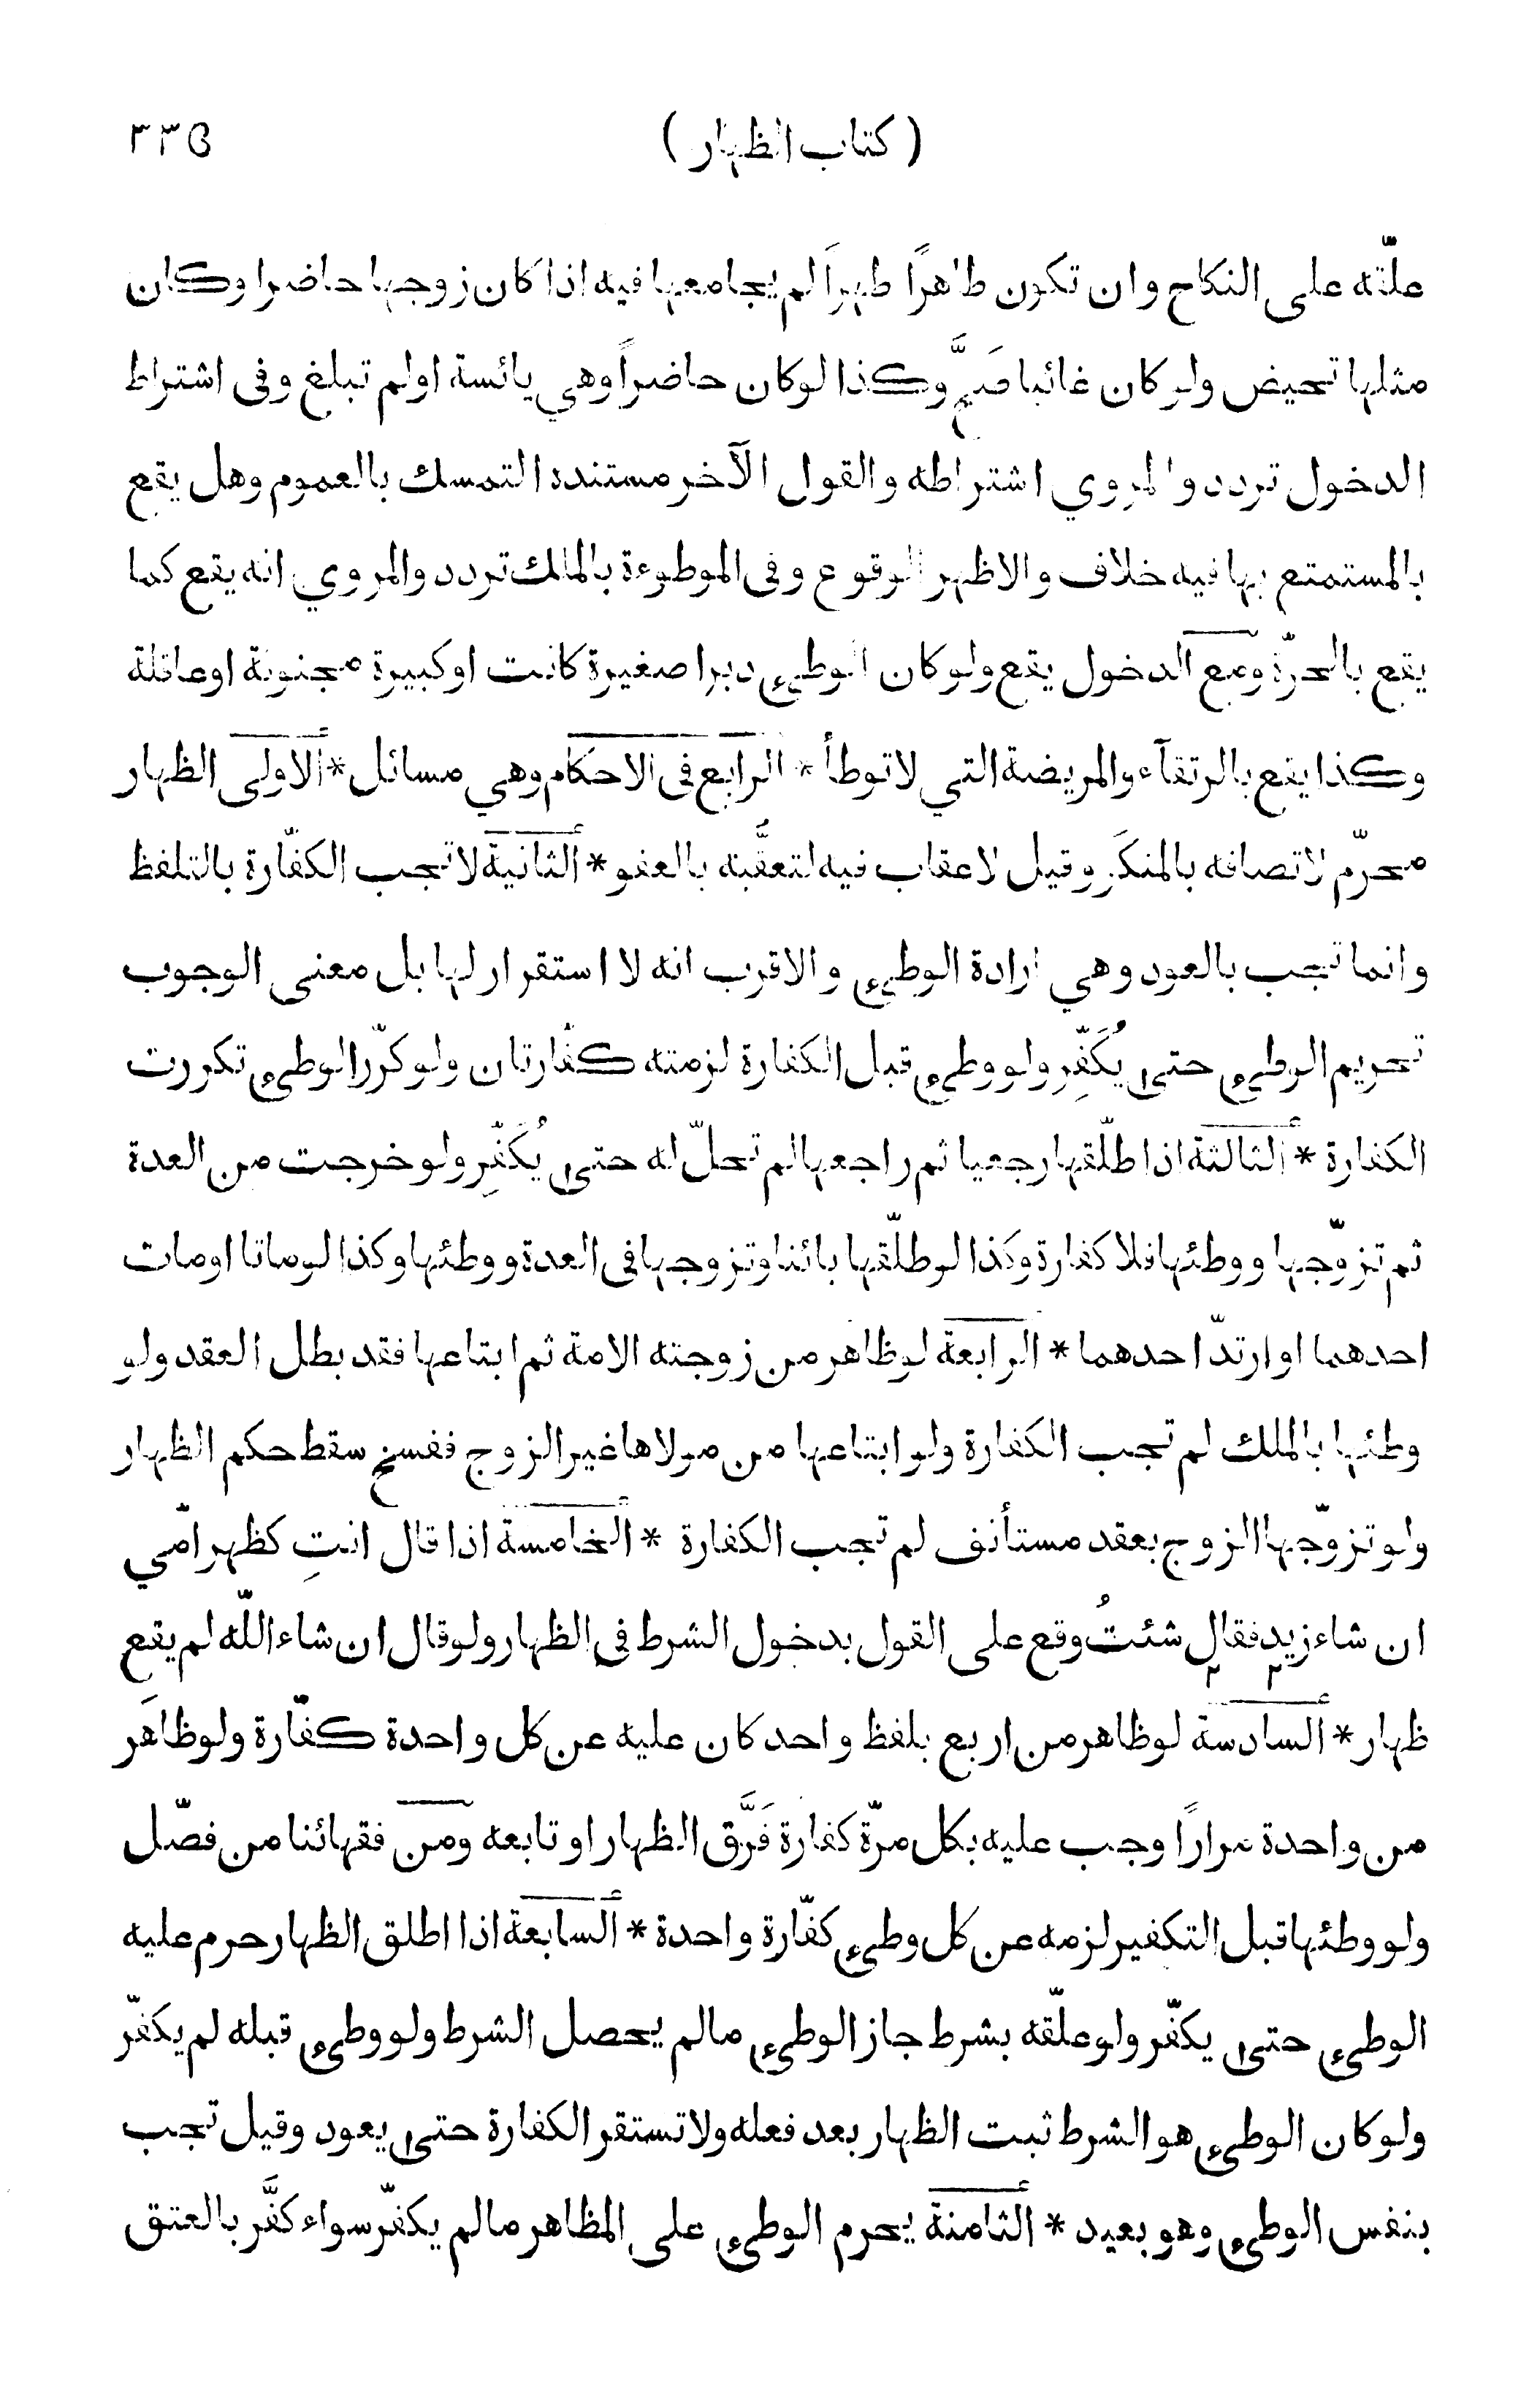 ( كتاب الظهار ) ٣٣٥
علّقه على النكاح وان تكون طاهرًا طهراً لم يجامعها فيه اذا كان زوجها حاضرا وكان
مثلها تحيض ولو كان غائبا صَحَّ وكذا لو كان حاضراً وهي يائسة او لم تبلغ وفى اشتراط
الدخول تردد والمروي اشتراطه والقول الآخر مستنده التمسك بالعموم وهل يقع
بالمستمتع بها فيه خلاف والاظهر الوقوع وفى الموطوءة بالملك تردد والمروي انه يقع كما
يقع بالحرّة ومع الدخول يقع ولو كان الوطىء دبرا صغيرة كانت او كبيرة مجنونة او عاقلة
وكذا يقع بالرتقآء والمريضة التي لا توطأ * الرابع فى الاحكام وهي مسائل * ألاولى الظهار
محرّم لاتصافه بالمنكَر وقيل لا عقاب فيه لتعقُّبه بالعفو * ألثانية لا تجب الكفّارة بالتلفظ
وانما تجب بالعود وهي ارادة الوطىء والاقرب انه لا استقرار لها بل معنى الوجوب
تحريم الوطىء حتى يُكَفِّر ولو وطىء قبل الكفارة لزمته كفّارتان ولو كرّر الوطىء تكررت
الكفارة * ألثالثة اذا طلّقها رجعيا ثم راجعها لم تحلّ له حتى يُكَفِّر ولو خرجت من العدة
ثم تزوّجها ووطئها فلا كفارة وكذا لو طلّقها بائنا وتزوجها فى العدة ووطئها وكذا لو ماتا او مات
احدهما او ارتدّ احدهما * الرابعة لو ظاهر من زوجته الامة ثم ابتاعها فقد بطل العقد ولو
وطئها بالملك لم تجب الكفارة ولو ابتاعها من مولاها غير الزوج ففسخ سقط حكم الظهار
ولو تزوّجها الزوج بعقد مستأنف لم تجب الكفارة * ألخامسة اذا قال انتِ كظهر امّي
ان شاء زيد فقال شئتُ وقع على القول بدخول الشرط في الظهار ولو قال ان شاء اللّه لم يقع
ظهار * ألسادسة لو ظاهر من اربع بلفظ واحد كان عليه عن كل واحدة كفّارة ولو ظاهَر
من واحدة مرارًا وجب عليه بكل مرّة كفارة فَرَّق الظهار او تابعه ومن فقهائنا من فصّل
ولو وطئها قبل التكفير لزمه عن كل وطىء كفّارة واحدة * ألسابعة اذا اطلق الظهار حرم عليه
الوطىء حتى يكفّر ولو علّقه بشرط جاز الوطىء ما لم يحصل الشرط ولو وطىء قبله لم يكفّر
ولو كان الوطىء هو الشرط ثبت الظهار بعد فعله ولا تستقر الكفارة حتى يعود وقيل تجب
بنفس الوطىء وهو بعيد * ألثامنة يحرم الوطىء على المظاهر ما لم يكفّر سواء كفَّر بالعتق